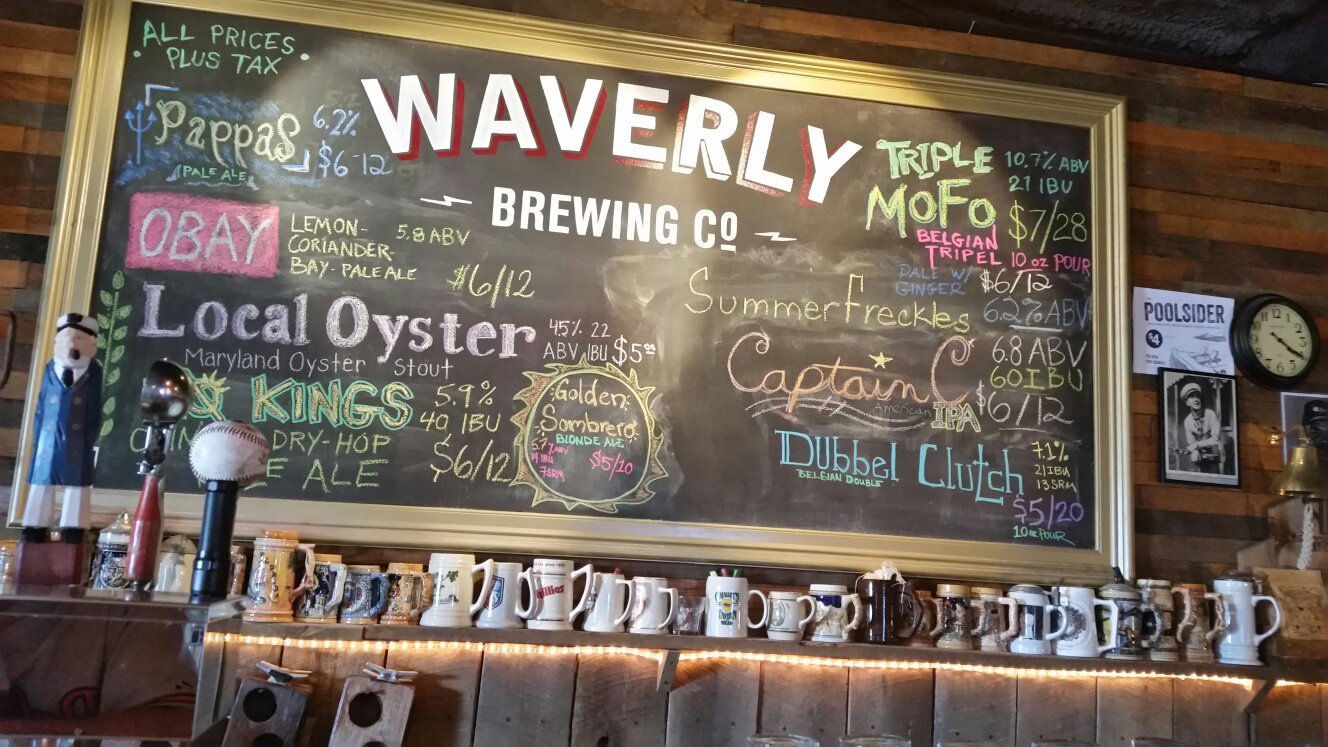 ALL PRICES
PLUS TAX
PAPPAS
6.2%
$6 12
PALE ALE
WAVERLY
BREWING CO
OBAY
LEMON-
CORIANDER-
BAY-PALE ALE
5.8 ABV
$6/12
Local Oyster
Maryland Oyster Stout
45% 22
ABV IBU
$5
KINGS
5.9%
40 IBU
DRY-HOP
ALE
$6/12
Golden
Sombrero
BLONDE ALE
5.7%
ABV
19 IBU
7SRM
$5/10
TRIPLE
MOFO
10.7% ABV
21 IBU
$7/28
BELGIAN
TRIPEL 10 oz POUR
PALE W/
GINGER
$6/12
Summer freckles
6.2% ABV
Captain C
American IPA
6.8 ABV
60 IBU
$6/12
DUbbel Clutch
BELGIAN DOUBLE
7.1%
21 IBU
13 SRM
$5/20
10oz POUR
POOLSIDER
$4